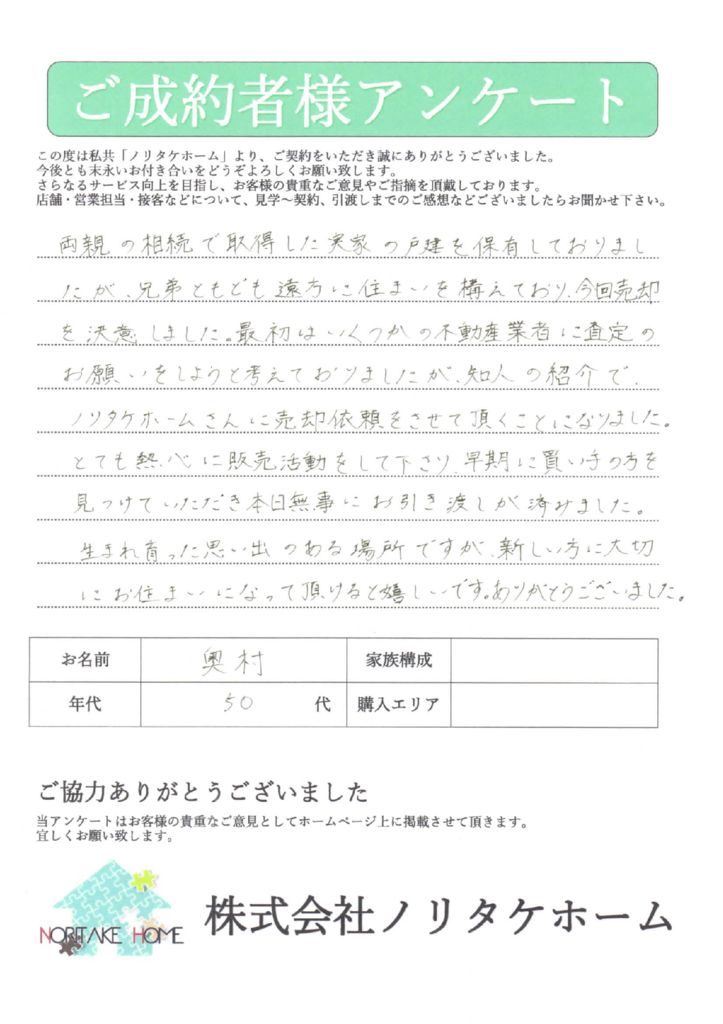 ご成約者様アンケート
この度は私共「ノリタケホーム」より、ご契約をいただき誠にありがとうございました。
今後とも末永いお付き合いをどうぞよろしくお願い致します。
さらなるサービス向上を目指し、お客様の貴重なご意見やご指摘を頂戴しております。
店舗・営業担当・接客などについて、見学～契約、引渡しまでのご感想などございましたらお聞かせ下さい。
両親の相続で取得した実家の戸建を保有しておりまし
たが、兄弟ともども遠方に住まいを構えており、今回売却
を決意しました。最初はいくつかの不動産業者に査定の
お願いをしようと考えておりましたが、知人の紹介で、
ノリタケホームさんに売却依頼をさせて頂くことになりました。
とても熱心に販売活動をして下さり、早期に買い手の方を
見つけていただき本日無事にお引き渡しが済みました。
生まれ育った思い出のある場所ですが、新しい方に大切
にお住まいになって頂けると嬉しいです。ありがとうございました。
お名前 奥村 家族構成
年代 50 代 購入エリア
ご協力ありがとうございました
当アンケートはお客様の貴重なご意見としてホームページ上に掲載させて頂きます。
宜しくお願い致します。
NORITAKE HOME 株式会社ノリタケホーム